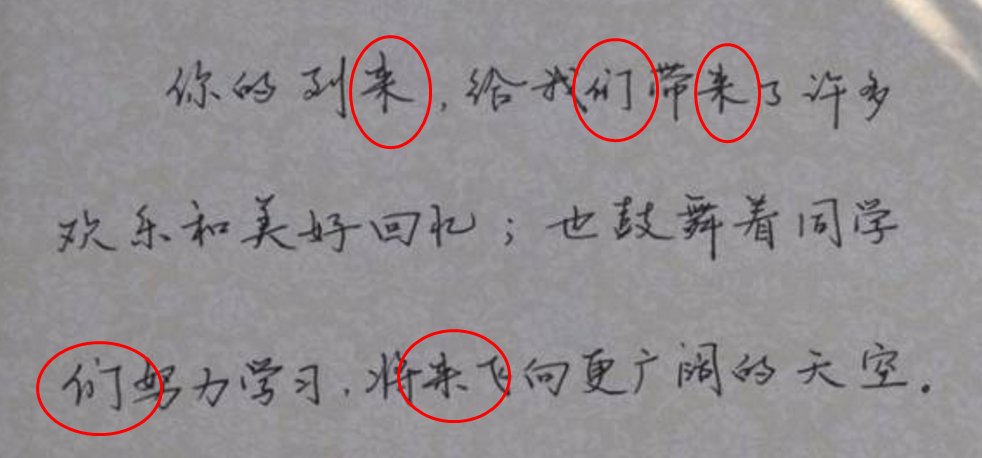 你的到来,给我们带来了许多
欢乐和美好回忆;也鼓舞着同学
们努力学习,将来飞向更广阔的天空.